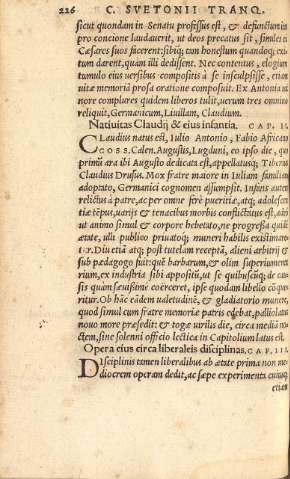 226 C. SVETONII TRANQ.
sicut quondam in Senatu professus est, & defunctum ita
pro concione laudauerit, ut deos precatus sit, similes ei
Cæsares suos facerent: sibiq; tam honestum quandoq; exi-
tum darent, quàm illi dedissent. Nec contentus, elogium
tumulo eius uersibus compositis à se insculpsisse, etiam
uitæ memoriā prosa oratione composuit. Ex Antonia mi
nore complures quidem liberos tulit, uerum tres omnino
reliquit, Germanicum, Liuillam, Claudium.
Natiuitas Claudij & eius infantia. CAP. II.
Claudius natus est, Iulio Antonio, Fabio Africano
COSS. Calen. Augustis, Lugduni, eo ipso die, quo
primū ara ibi Augusto dedicata est, appellatusq; Tiberius
Claudius Drusus. Mox fratre maiore in Iuliam familiam
adoptato, Germanici cognomen assumpsit. Infans autem
relictus à patre, ac per omne ferè pueritiæ, atq; adolescen
tiæ tēpus, uarijs & tenacibus morbis conflictatus est, adeo
ut animo simul & corpore hebetato, ne progressa quidem
ætate, ulli publico priuatoq; muneri habilis existimare-
tur. Diu etiā atq; post tutelam receptā, alieni arbitrij &
sub pædagogo fuit: quē barbarum, & olim superiumenta
rium, ex industria sibi appositū, ut se quibuscūq; de cau-
sis quàm sæuissimè coërceret, ipse quodam libello cōque-
ritur. Ob hāc eādem ualetudinē, & gladiatorio munere,
quod simul cum fratre memoriæ patris edebat, palliolatus
nouo more præsedit: & togæ uirilis die, circa mediā no-
ctem, sine solenni officio lectica in Capitolium latus est.
Opera eius circa liberaleis disciplinas. CAP. III.
Disciplinis tamen liberalibus ab ætate prima non me
diocrem operam dedit, ac sæpe experimenta cuiusq;
etiam